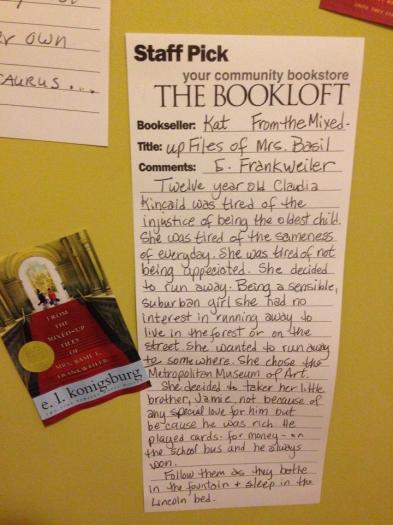 ER OWN
AURUS...
Staff Pick
your community bookstore
THE BOOKLOFT
Bookseller: Kat From the Mixed-
Title: up Files of Mrs. Basil
Comments: E. Frankweiler
Twelve year old Claudia
Kincaid was tired of the
injustice of being the oldest child.
She was tired of the sameness
of everyday. She was tired of not
being appeciated. She decided
to run away. Being a sensible,
suburban girl she had no
interest in running away to
live in the forest or on the
street. She wanted to run away
to somewhere. She chose the
Metropolitan Museum of Art.
She decided to taker her little
brother, Jamie, not because of
any special love for him but
because he was rich. He
played cards - for money - on
the school bus and he always
won.
Follow them as they bathe
in the fountain + sleep in the
Lincoln bed.
FROM
THE
MIXED-UP
FILES
OF
MRS. BASIL E.
FRANKWEILER
e. l. konigsburg